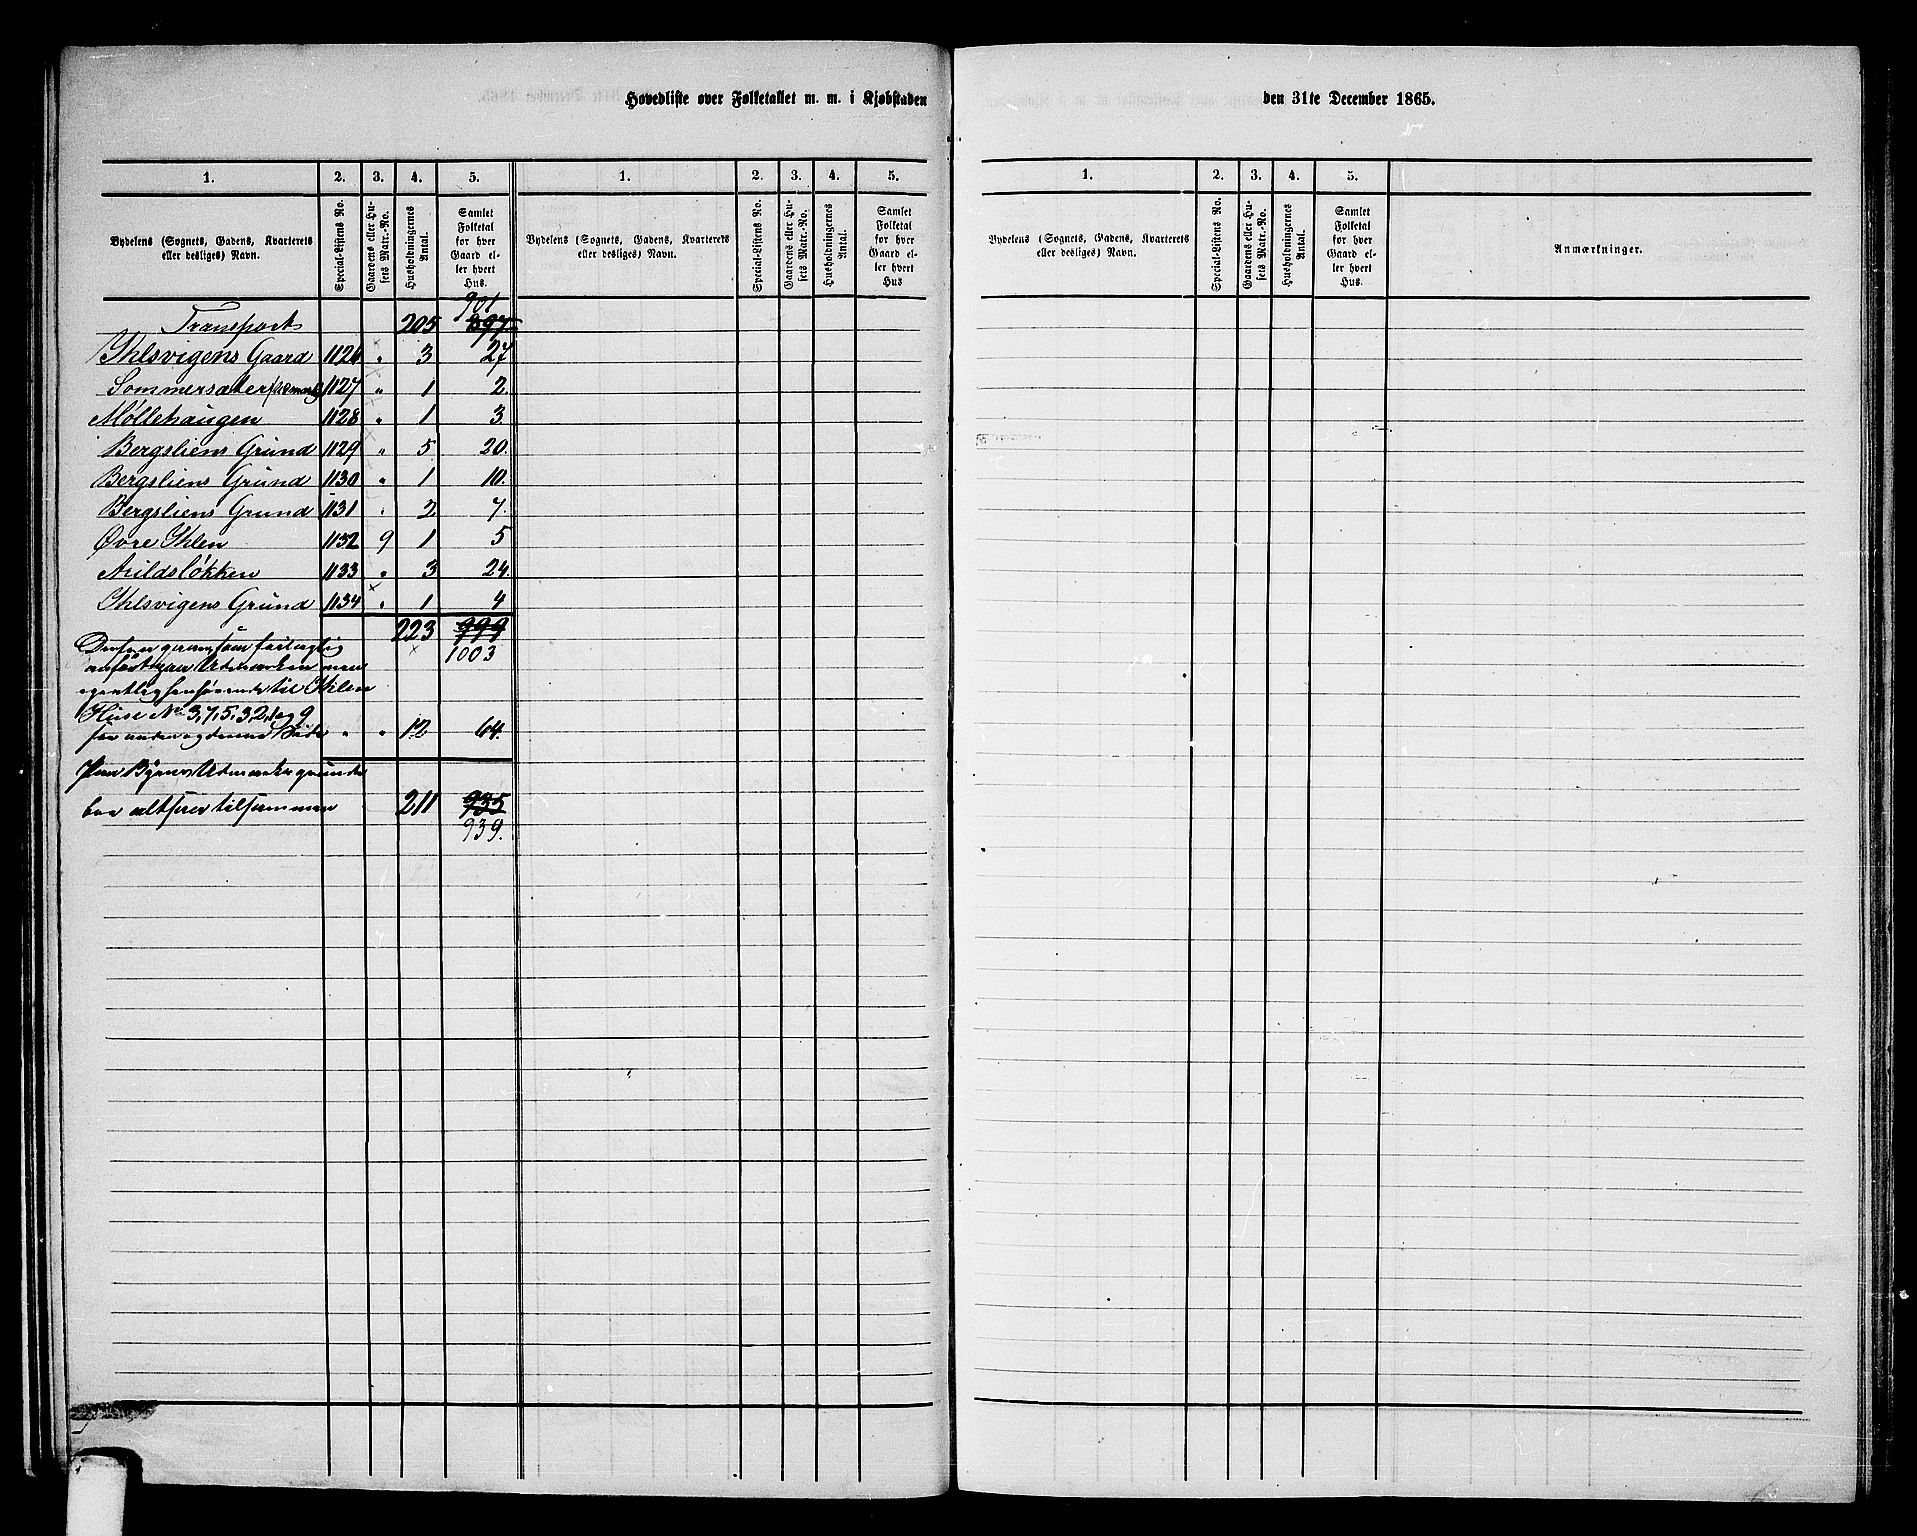 Hovedliste over Folketallet m. m. i Kjøbstaden
den 31te December 1865.
1. 2. 3. 4. 5. 1. 2. 3. 4. 5.
Bydelens (Sognets, Gadens, Kvarterets eller desliges) Navn.
Special-Listens No.
Gaardens eller Husets Matr.-No.
Husholdningernes Antal.
Samlet Folketal for hver Gaard eller hvert Hus.
Bydelens (Sognets, Gadens, Kvarterets eller desliges) Navn.
Special-Listens No.
Gaardens eller Husets Matr.-No.
Husholdningernes Antal.
Samlet Folketal for hver Gaard eller hvert Hus
901
Transport 205 897.
Ihlsvigens Gaard 1126 " 3 27
Sommersæter 1127 " 1 2.
Møllehaugen 1128 " 1 3.
Bergsliens Grund 1129 " 5 20.
Bergsliens Grund 1130 " 1 10.
Bergsliens Grund 1131 " 2 7.
Øvre Ihlen 1132 9 1 5
Arildsløkken 1133 " 3 24.
Ihlsvigens Grund 1134 " 1 4
223 999
1003
men
henhørende til Ihlen
Huse No 3, 7, 5, 3, 2, 1 og 9
denne Side " " 12 64.
Paa Byens Udmarksgrunde
boe altsaa tilsammen 211 935
939.
1. 2. 3. 4. 5.
Bydelens (Sognets, Gadens, Kvarterets eller desliges) Navn.
Special-Listens No.
Gaardens eller Husets Matr.-No.
Husholdningernes Antal.
Samlet Folketal for hver Gaard eller hvert Hus.
Anmærkninger.